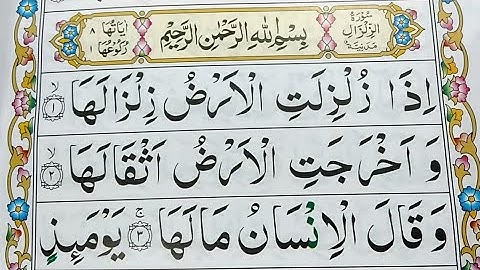 سُوْرَةُ الزِّلْزَالِ مَدَنِيَّةٌ
بِسْمِ اللّٰهِ الرَّحْمٰنِ الرَّحِيْمِ
اٰيَاتُهَا ٨ رُكُوْعُهَا ١
اِذَا زُلْزِلَتِ الْاَرْضُ زِلْزَالَهَا ۙ﴿١﴾
وَ اَخْرَجَتِ الْاَرْضُ اَثْقَالَهَا ۙ﴿٢﴾
وَ قَالَ الْاِنْسَانُ مَا لَهَا ۚ﴿٣﴾ يَوْمَئِذٍ